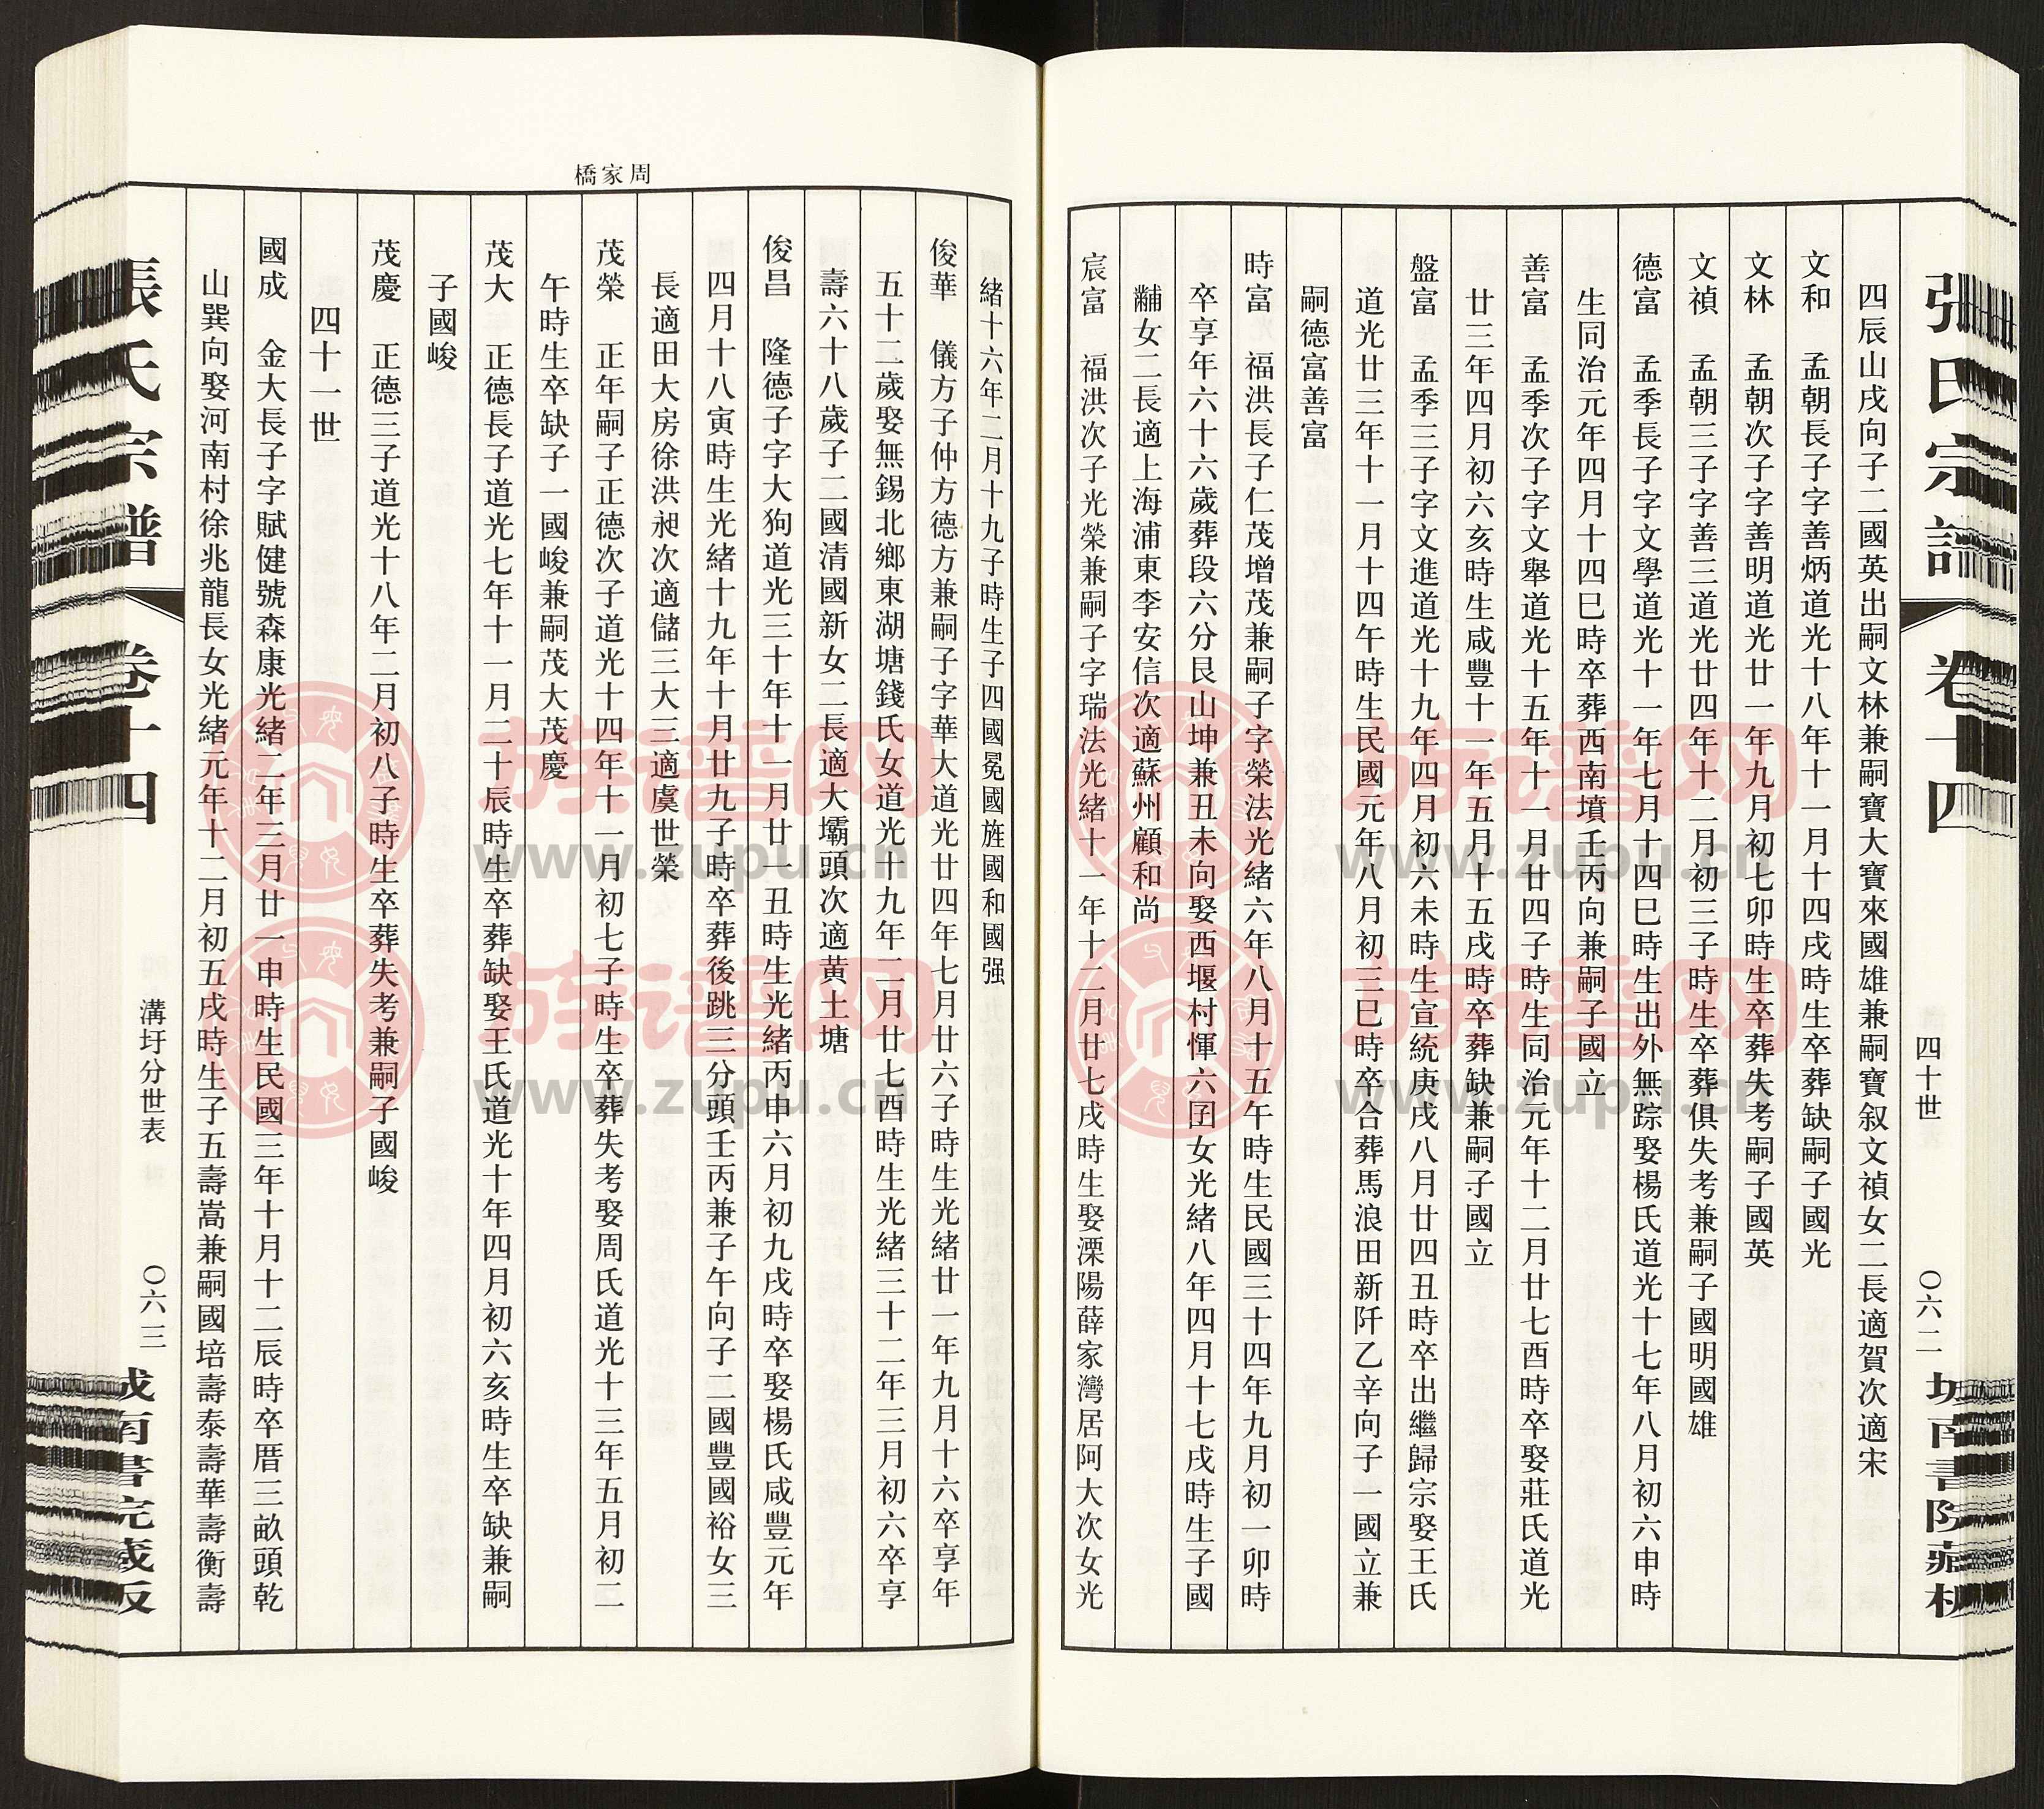 張氏宗譜 卷十四 四十世 〇六二
四辰山戌向子二國英出嗣文林兼嗣寶大寶來國雄兼嗣寶叙文禎女二長適賀次適宋
文和 孟朝長子字善炳道光十八年十一月十四戌時生卒葬缺嗣子國光
文林 孟朝次子字善明道光廿一年九月初七卯時生卒葬失考嗣子國英
文禎 孟朝三子字善三道光廿四年十二月初三子時生卒葬俱失考兼嗣子國明國雄
德富 孟季長子字文學道光十一年七月十四巳時生出外無踪娶楊氏道光十七年八月初六申時
生同治元年四月十四巳時卒葬西南墳壬丙向兼嗣子國立
善富 孟季次子字文舉道光十五年十一月廿四子時生同治元年十二月廿七酉時卒娶莊氏道光
廿三年四月初六亥時生咸豐十一年五月十五戌時卒葬缺兼嗣子國立
盤富 孟季三子字文進道光十九年四月初六未時生宣統庚戌八月廿四丑時卒出繼歸宗娶王氏
道光廿三年十一月十四午時生民國元年八月初三巳時卒合葬馬浪田新阡乙辛向子一國立兼
嗣德富善富
時富 福洪長子仁茂增茂兼嗣子字榮法光緒六年八月十五午時生民國三十四年九月初一卯時
卒享年六十六歲葬段六分艮山坤兼丑未向娶西堰村惲六囝女光緒八年四月十七戌時生子國
黼女二長適上海浦東李安信次適蘇州顧和尚
宸富 福洪次子光榮兼嗣子字瑞法光緒十一年十二月廿七戌時生娶溧陽薛家灣居阿大次女光
周家橋
緒十六年二月十九子時生子四國冕國旌國和國强
俊華 儀方子仲方德方兼嗣子字華大道光廿四年七月廿六子時生光緒廿一年九月十六卒享年
五十二歲娶無錫北鄉東湖塘錢氏女道光十九年二月廿七酉時生光緒三十二年三月初六卒享
壽六十八歲子二國清國新女二長適大壩頭次適黄土塘
俊昌 隆德子字大狗道光三十年十一月廿一丑時生光緒丙申六月初九戌時卒娶楊氏咸豐元年
四月十八寅時生光緒十九年十月廿九子時卒葬後跳三分頭壬丙兼子午向子二國豐國裕女三
長適田大房徐洪昶次適儲三大三適虞世榮
茂榮 正年嗣子正德次子道光十四年十一月初七子時生卒葬失考娶周氏道光十三年五月初二
午時生卒缺子一國峻兼嗣茂大茂慶
茂大 正德長子道光七年十一月二十辰時生卒葬缺娶王氏道光十年四月初六亥時生卒缺兼嗣
子國峻
茂慶 正德三子道光十八年二月初八子時生卒葬失考兼嗣子國峻
四十一世
國成 金大長子字賦健號森康光緒二年三月廿一申時生民國三年十月十二辰時卒厝三畝頭乾
山巽向娶河南村徐兆龍長女光緒元年十二月初五戌時生子五壽嵩兼嗣國培壽泰壽華壽衡壽
溝圩分世表 〇六三
族谱网
www.zupu.cn
族谱网
www.zupu.cn
族谱网
www.zupu.cn
族谱网
www.zupu.cn